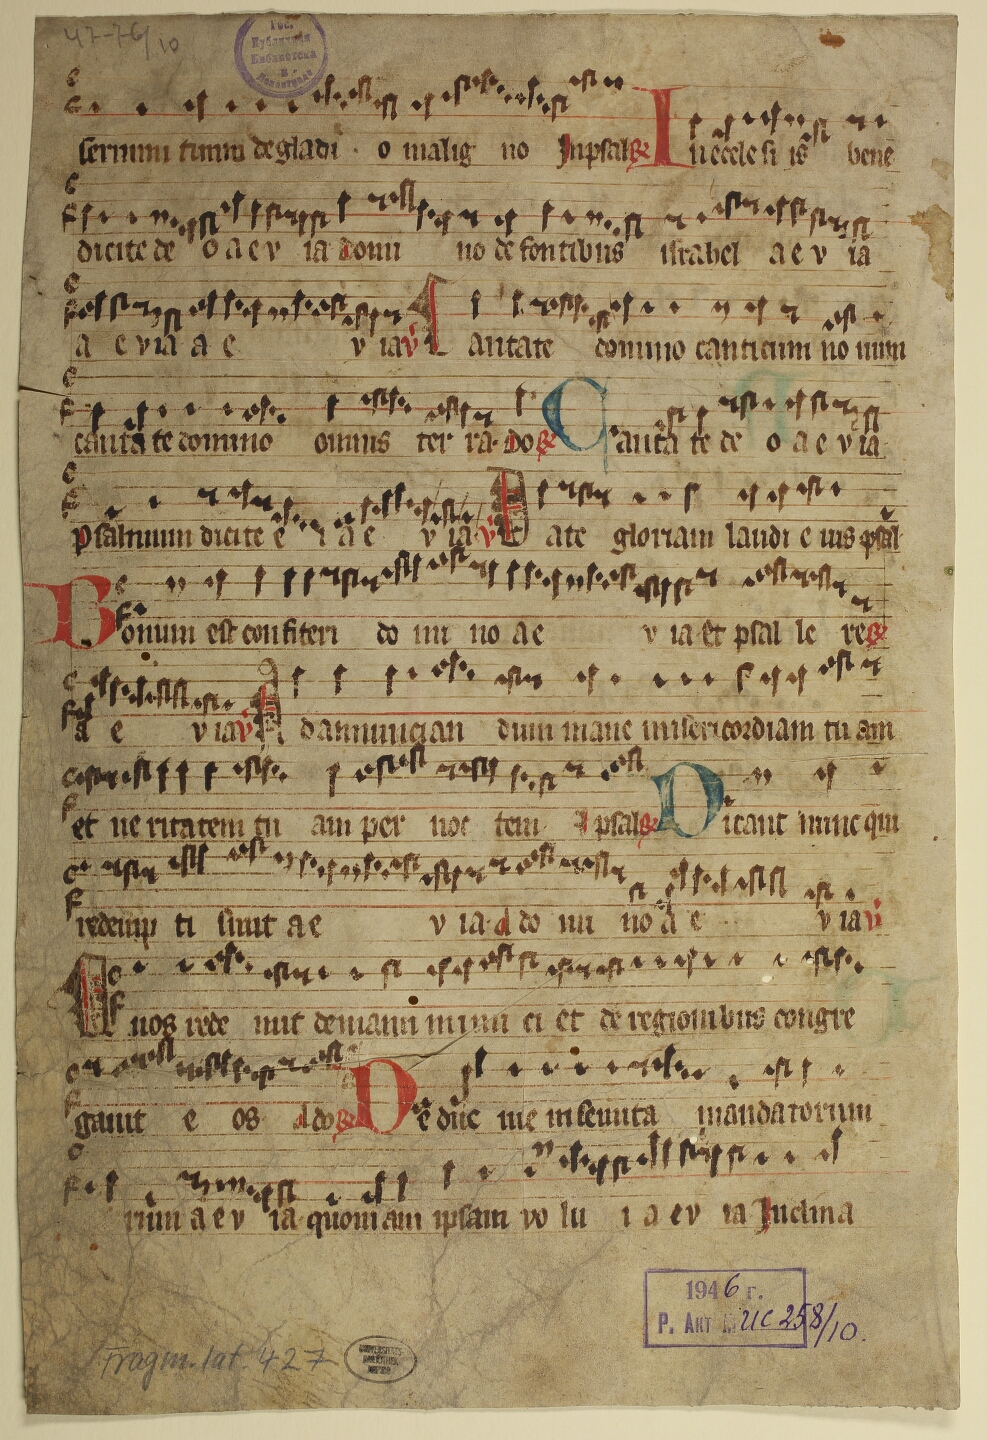 47-76/10
Гос.
Публичная
Библиотека
в
Ленинграде
sermini timui de gladi o malig no In psal
In ecclesi is bene
dicite de o a e v ia domi no de fontibus israhel a e v ia
a e v ia a e v ia v Cantate domino canticum no uum
canta te domino omnis ter ra do Canta te de o a e v ia
psalmum dicite e i a e v ia v Date gloriam laudi e ius psal
Bonum est confiteri do mi no a e v ia Et psal le re
a e v ia v Ad annuncian dum mane misericordiam tu am
et ue ritatem tu am per noc tem psal Dicant nunc qui
redemp ti sunt a e v ia do mi no a e v ia v
nos rede mit de manu inimi ci et de regionibus congre
gauit e os do De duc me in semita mandatorum
rum a e v ia quoniam ipsam vo lu i a e v ia Inclina
1946 г.
Р. Акт № ис 258/10.
Fragm. lat. 427